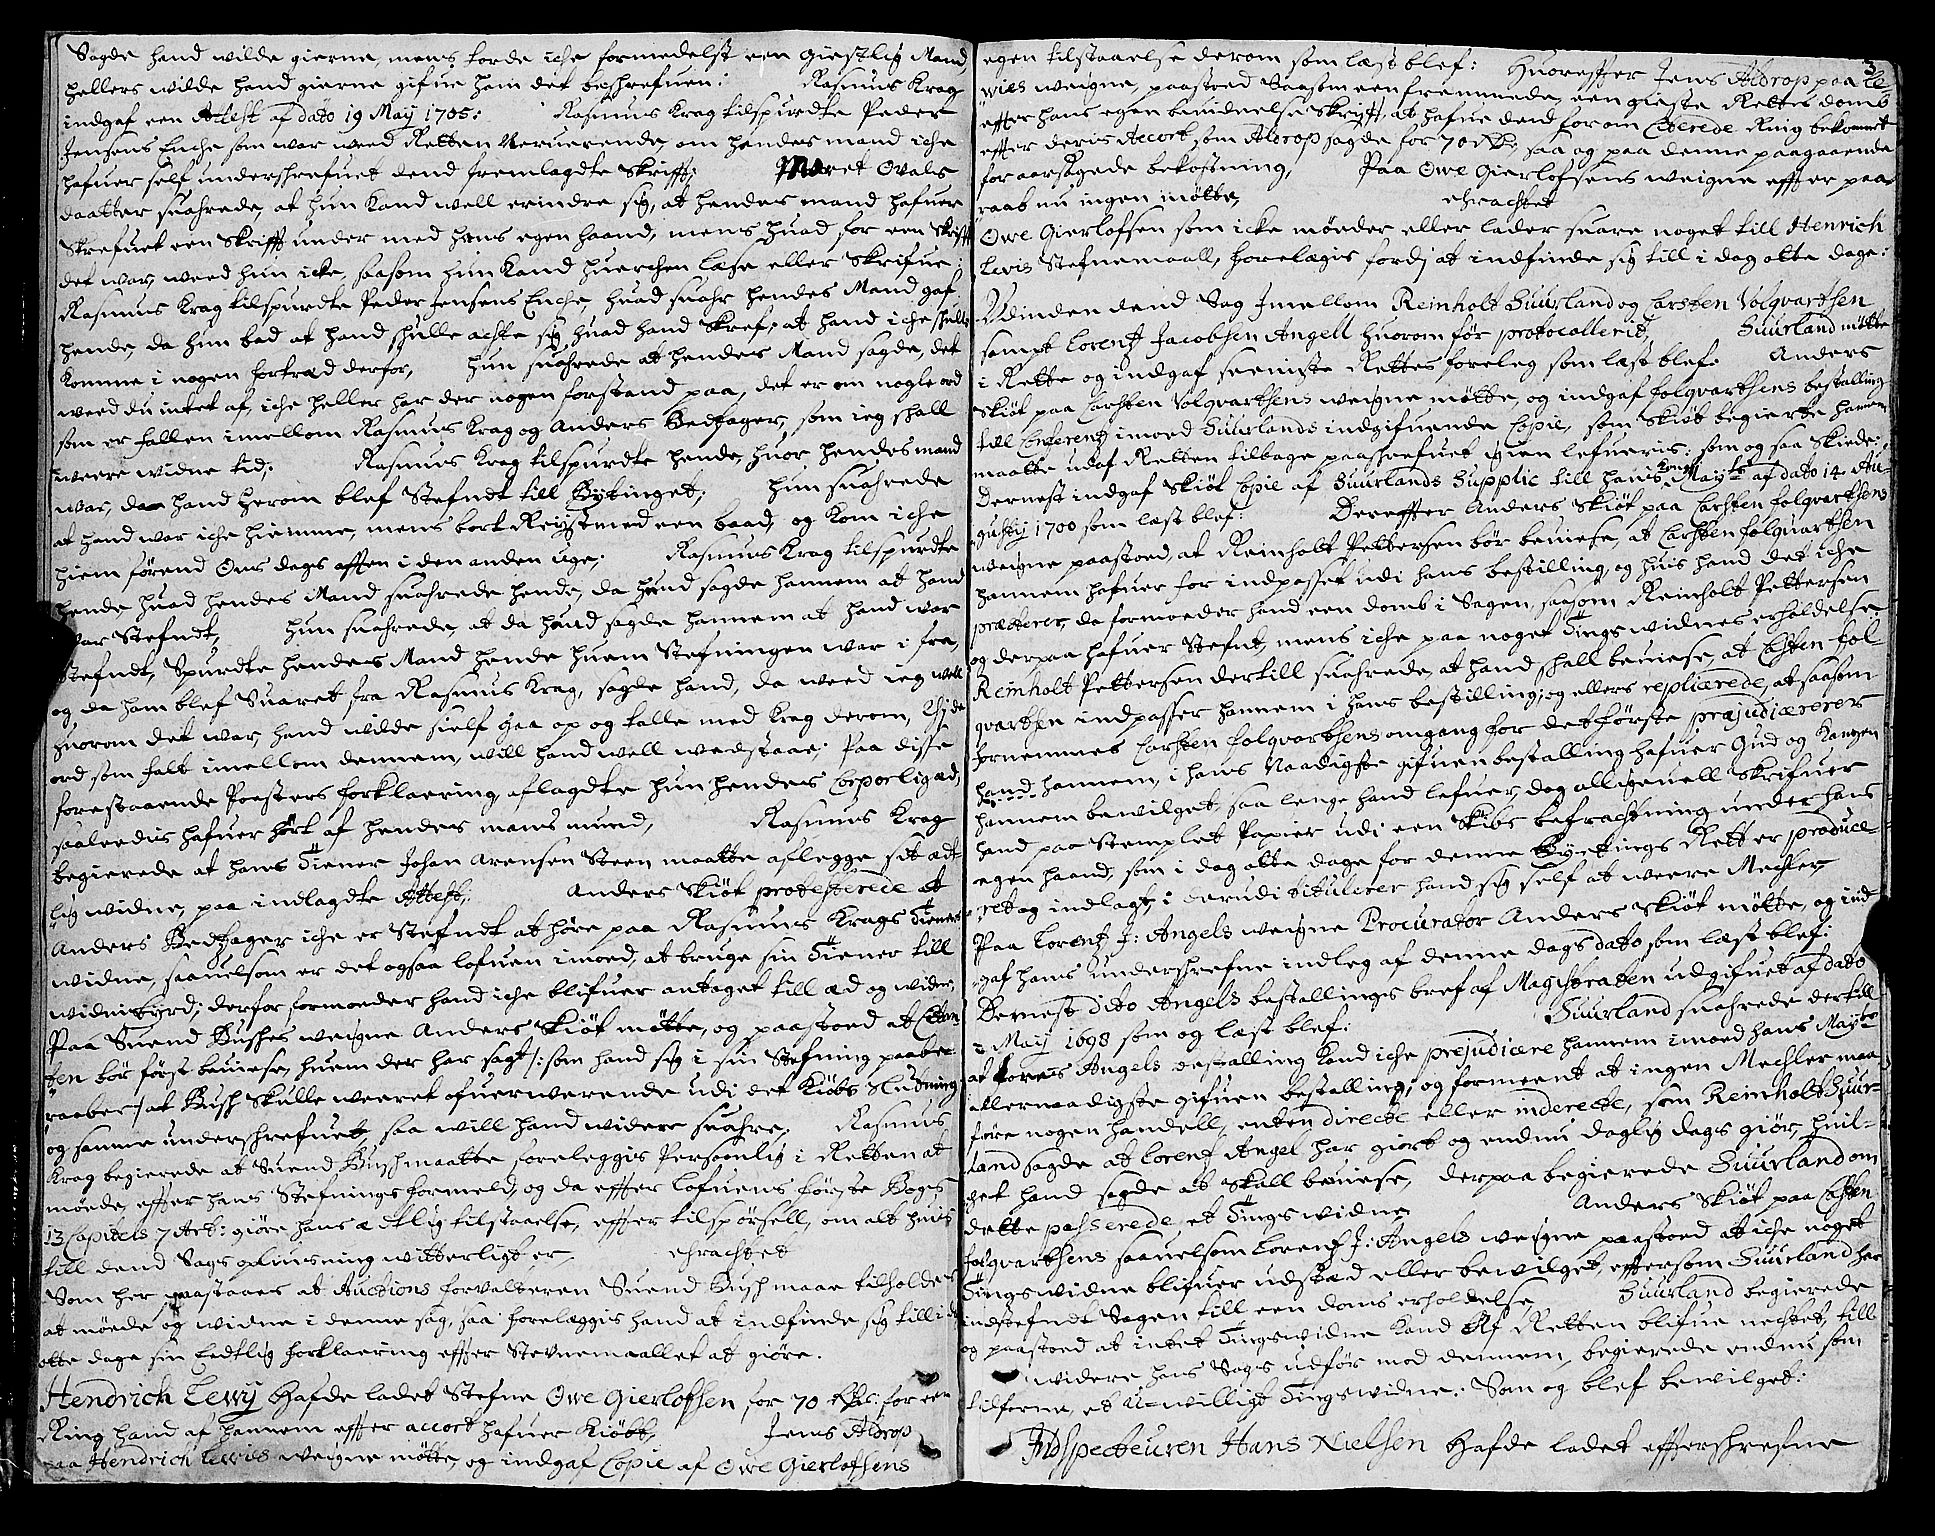 Sagde hand wilde gierne, mens torde iche formedelst een Giestlig Mand,
hellers wilde hand gierne gifue ham det beschrefuen: Rasmus Krag
indgaf een Attest af dato 19 May 1705: Rasmus Krag tilspurdte Peder
Jensens Enche som war weed Retten Neruerende, om hendes mand iche
hafuer self underschrefuet dend fremlagdte Skrifft; Maret Ovals
daatter suahrede, at hun Kand well erindre sig, at hendes mand hafuer
Skrefuet een Skrifft under med hans egen haand, mens huad for een Skrifft
det war, weed hun icke, saasom hun Kand huerchen læse eller Skrifue:
Rasmus Krag tilspurdte Peder Jensens Enche, huad suahr hendes Mand gaf
hende, da hun bad at hand skulle achte sig, huad hand Skref, at hand iche skulle
komme i nogen fortræd derfor, hun suahrede at hendes Mand sagde, det
weed du intet af, iche heller har der nogen forstand paa, det er om nogle ord
som er fallen imellom Rasmus Krag og Anders Bedhager, som ieg skall
weere widne tid; Rasmus Krag tilspurdte hende, huor hendes mand
war, da hand herom blef Stefndt till Bytinget; hun suahrede
at hand war iche hiemme, mens bort Reyst med een baad, og kom iche
hiem førend Ons dags afften i den anden Uge; Rasmus Krag tilspurdte
hende, huad hendes Mand suahrede hende, da hund sagde hannem at hand
war Stefndt, hun suahrede, at da hund sagde hannem at hand war
Stefndt, Spurdte hendes Mand hende huem Stefningen war i fra,
og da ham blef Suaret fra Rasmus Krag, sagde hand, da weed ieg well
huorom det war, hand wilde sielf gaa op og talle med Krag derom,
ord som falt imellom dennem, will hand well wedstaae; Paa disse
forestaaende Posters forklaering, aflagdte hun hendes Corporlig æd,
saaleedis hafuer hørt af hendes mans mund, Rasmus Krag
begierede at hans Tiener Johan Arensen Steen maatte aflegge sit æd-
lig widne, paa indlagdte Attest; Anders Skiøt protesterede at
Anders Bedhager iche er Stefndt at høre paa Rasmus Krags Tieners
widne, saauelsom er det ogsaa lofuen imoed, at bruge sin Tiener till
widnisbyrd; derfor formoeder hand iche blifuer antaget till æd og widne,
Paa Suend Bushes weigne Anders Skiøt møtte, og paastoed at Citan-
ten bør først beuiese, huem der har sagt /: som hand sig i sin Stefning paabe-
raaber :/ at Bush Skulle weeret ofuerwerende udi det Kiøbs Slutning
og samme underschrefuet, saa will hand widere suahre, Rasmus
Krag begierede at Suend Bush maatte foreleggis Persoonlig i Retten at
møede, effter hans Stefnings formeld, og da effter Lofuens første Bogs
13 Capitels 7 Art: giøre hans ædtlig tilstaaelse, effter tilspørsell, om alt huis
till dend Sags oplusning witterligt er, Ehrachtet
Som her paastaaes at Auctions forvalteren Suend Bush maae tilholdes
at møede og widne i denne sag, saa forelæggis hand at indfinde sig till i dag
otte dage sin Eedtlig forklaering effter Stevnemaallet at giøre.
Hendrich Lewy hafde ladet Stefne Owe Gierlofsen for 70 Rdr: for een
Ring hand af hannem effter accort hafuer Kiøbt, Jens Aldrop
paa Hendrich Lewies weigne møtte, og indgaf Copie af Owe Gierlofsens
3
egen tilstaaelse derom som læst blef: Huoreffter Jens Aldrop paa Le-
wies weigne, paastoed Saasom een fremmede, een gieste Rettes domb
effter hans egen beuidnelse Skrifft, at hafue dend forom Citerede Ring bekommet
effter deris Accort som Aldrop sagde for 70 Rdr, saa og paa denne paagaaende
foraarsagede bekostning, Paa Owe Gierlofsens weigne effter paa-
raab nu ingen møtte, Ehrachtet
Owe Gierlofsen som icke møeder eller lader suare noget till Henrich
Lewis Stefnemaall, forelægis fordj at indfinde sig till i dag otte dage:
Udinden dend Sag Imellom Reinholt Suurland og Carsten Volqvartsen
sampt Lorentz Jacobsen Angell huorom før protocollerit, Suurland møtte
i Rette og indgaf seeniste Rettes foreleg som læst blef. Anders
Skiøt paa Carsten Volqvartsens weigne møtte, og indgaf folqvartsens bestalling
till Conferentz imoed Suurlands indgifuende Copie, som Skiøt begierte hannem
maatte udaf Retten tilbage paaschrefuet igien lefueris; som og saa Skiede;
Dernest indgaf Skiøt Copie af Suurlands Supplic till hans Kong: Maytz af dato 14 Au-
gusty 1700 som læst blef: Dereffter Anders Skiøt paa Carsten folqvartsens
weigne paastoed, at Reinholt Pettersen bør beuiese, at Carsten folqvartsen
hannem hafuer for indpasset udi hans bestilling, og huis hand det iche
præsterer, da formoeder hand een domb i Sagen, saasom Reinholt Pettersen
og derpaa hafuer Stefnt, mens iche paa noget Tings widnes erholdelse
Reinholt Pettersen dertill suahrede, at hand skall beuiese, at Casten fol-
qvartsen indpasser hannem i hans bestilling; og ellers replicerede, at saasom
fornemmes Carsten folqvartsens omgang for det første præjudicerer
hand hannem, i hans Naadigste gifuen bestalling hafuer Gud og Kongen
hannem bewilget, saa lenge hand lefuer, dog alligeuell Skrifuer
hand paa Stemplet Papier udi een Skibs befrachtning under hans
egen haand, som i dag otte dage for denne Byetings Rett er produce-
ret og indlagt, i derudi titulerer hand sig self at weere Mechler,
Paa Lorentz J: Angels weigne Procurator Anders Skiøt møtte, og ind-
gaf hans underschrefne indleg af denne dags dato som læst blef:
Dernest dito Angels bestallings bref af Magistraten udgifuet af dato
2 May 1698 som og læst blef: Suurland suahrede dertill
at Lorens Angels bestalling Kand iche prejudicere hannem imoed hans Maytz
allernaadigste gifuen bestalling; og formeent at ingen Mechler maa
føre nogen handell, enten directe eller inderecte, som Reinholt Suur-
land sagde at Lorentz Angel har giort og endnu daglig dags giør, huil-
chet hand sagde at skall beuiese, derpaa begierede Suurland om
dette passerede et Tings widne, Anders Skiøt paa Casten
folqvartsens saauelsom Lorentz J: Angels weigne paastoed at iche noget
Tings widne blifuer udstæd eller bewilget effersom Suurland har
indstefndt Sagen till een doms erholdelse, Suurland begierede
og paastoed at intet Tingswidne Kand af Retten blifue nechtet, till
widere hans Sags udfør mod dennem, begierede endnu som
tilforne, et U-willigt Tingswidne: Som og blef bewilget:
Indspecteuren Hans Nielsen hafde ladet effterschrefne